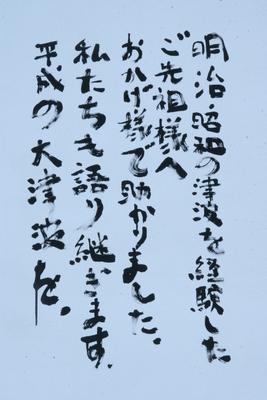 明治・昭和の津波を経験した
ご先祖様へ
おかげ様で助かりました、
私たちも語り継ぎます、
平成の大津波を、